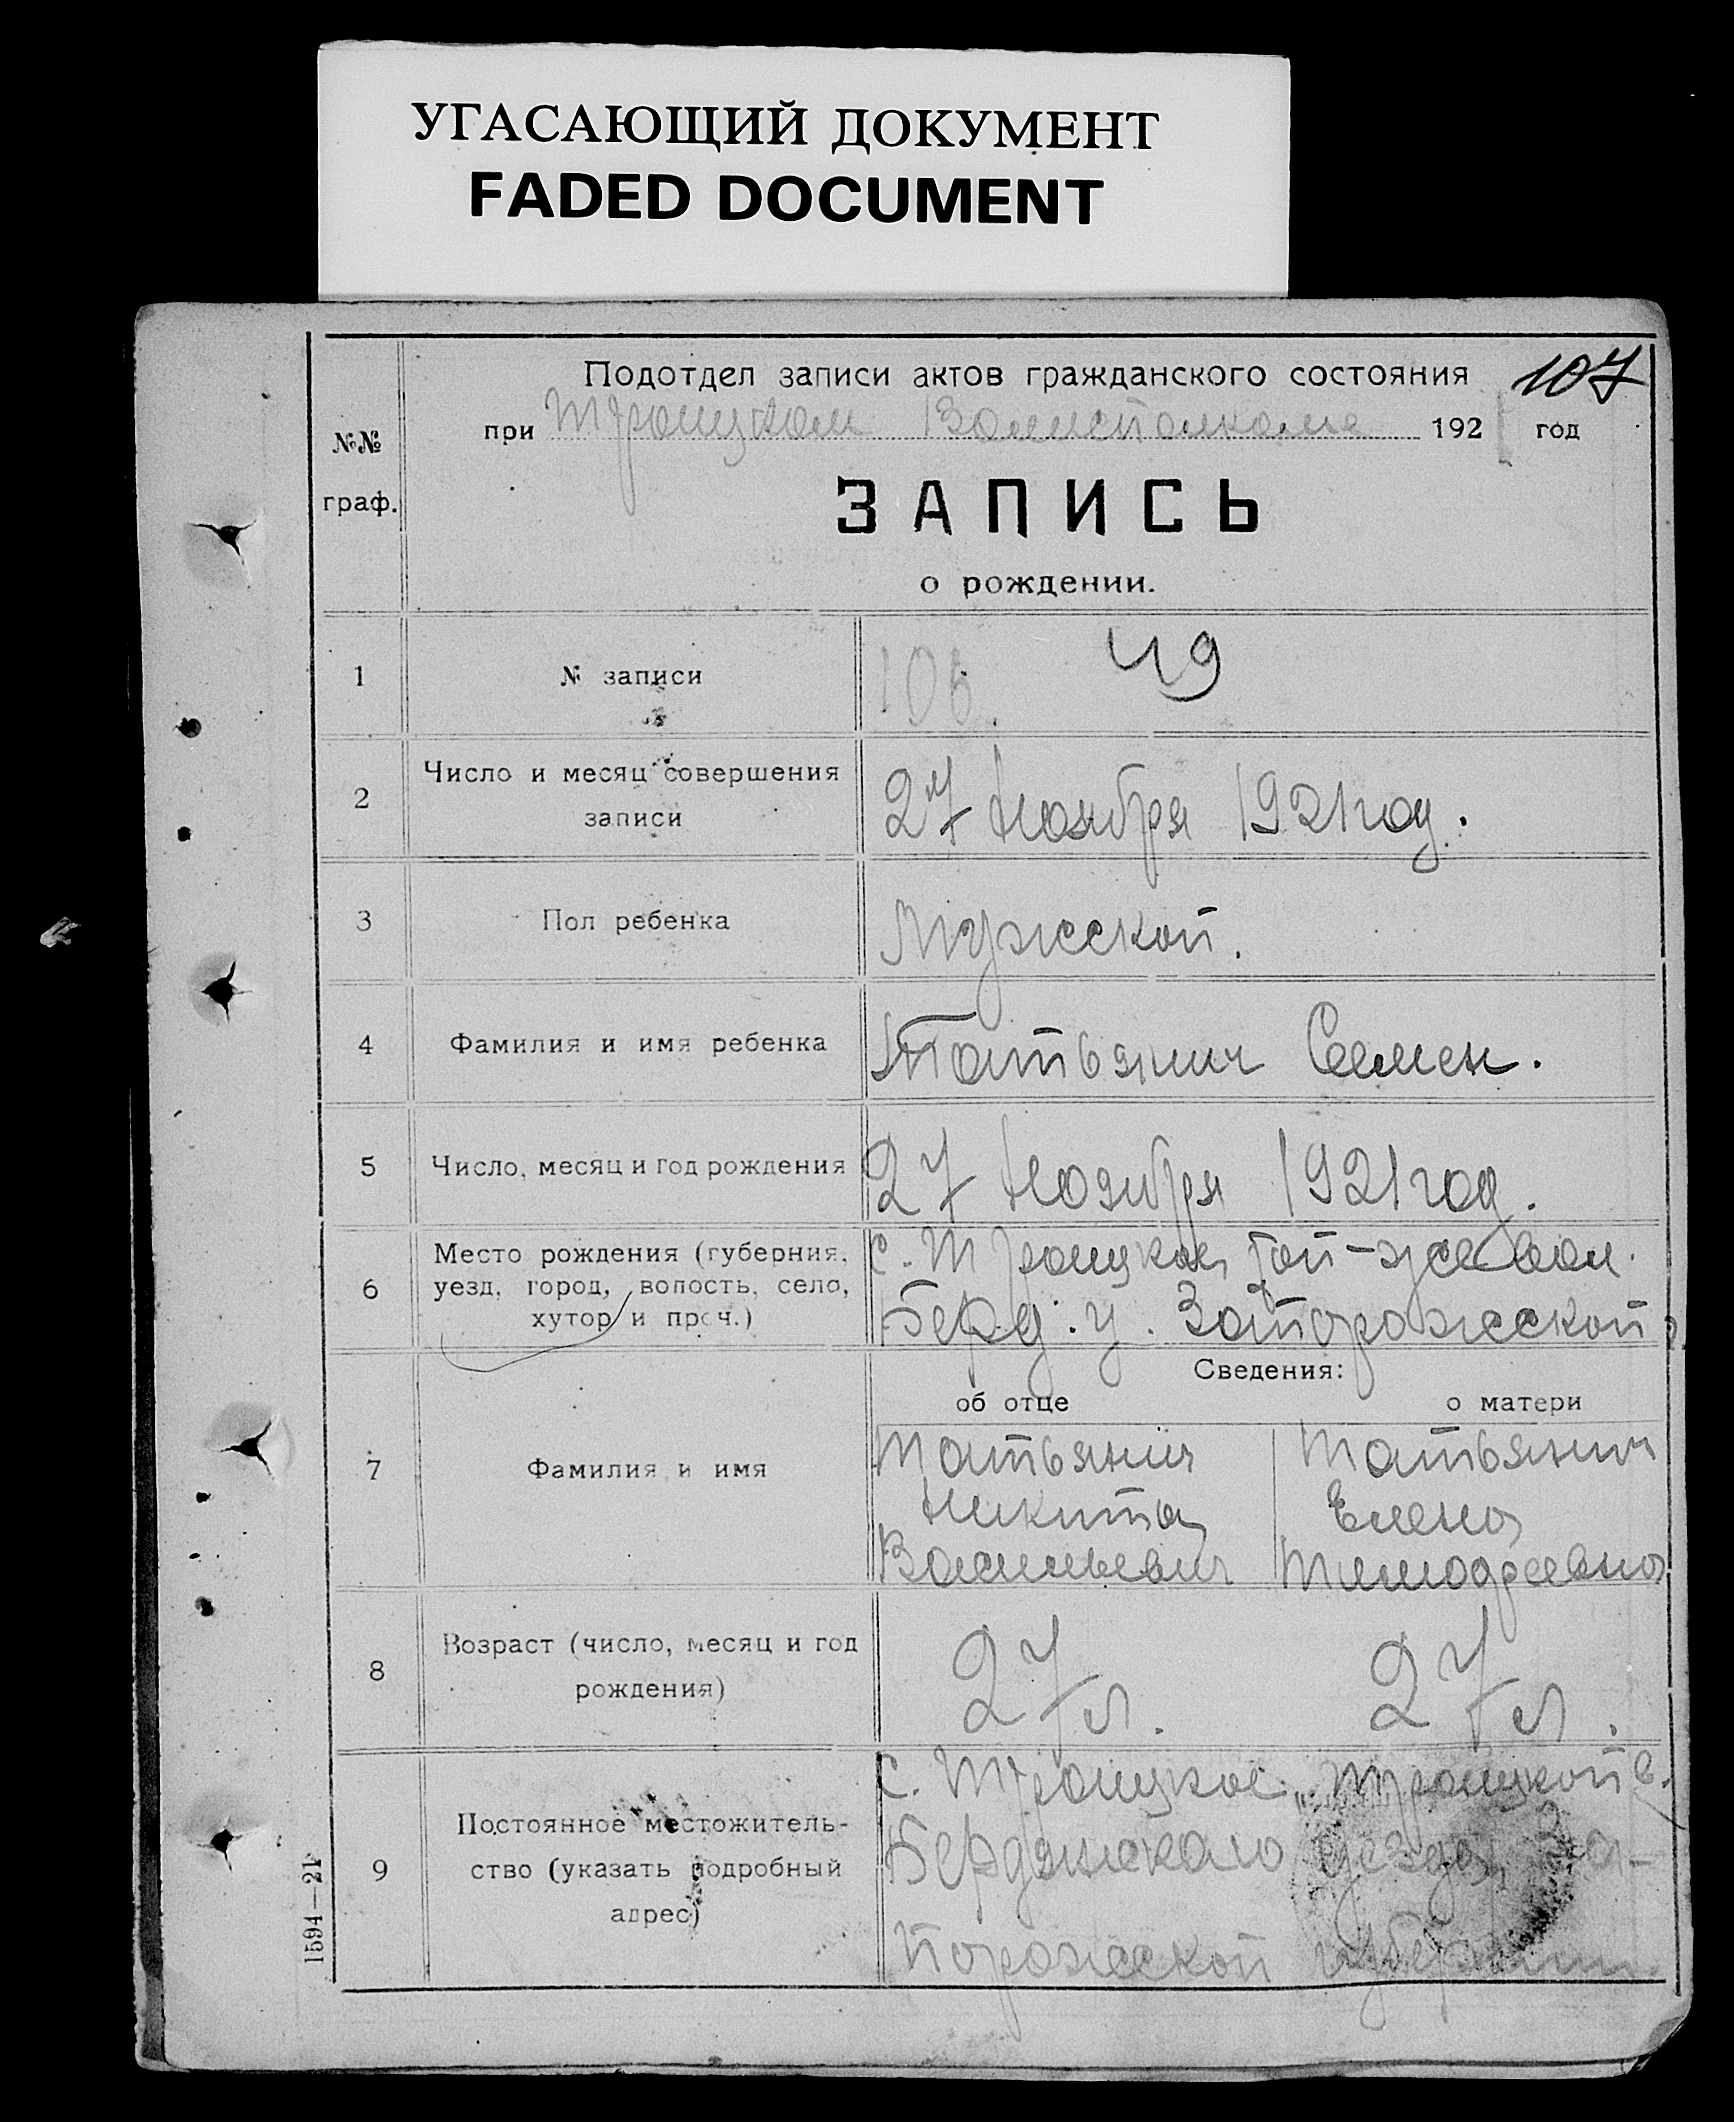 УГАСАЮЩИЙ ДОКУМЕНТ
FADED DOCUMENT
107
Подотдел записи актов гражданского состояния
при Троицком Волисполкоме 1921 год
№№
граф.
ЗАПИСЬ
о рождении.
1 № записи 106. 49
2 Число и месяц совершения
записи
27 Ноября 1921 год.
3 Пол ребенка Мужской.
4 Фамилия и имя ребенка Татьянич Семен.
5 Число, месяц и год рождения 27 Ноября 1921 год.
6 Место рождения (губерния,
уезд, город, волость, село,
хутор и проч.)
с. Троицкое, той-же вол.
Берд. у. Запорожской
Сведения:
об отце о матери
7 Фамилия и имя
Татьянич Татьянич
Никита Елена
Васильевич Тимофеевна
8 Возраст (число, месяц и год
рождения)
27 л. 27 л.
9 Постоянное местожитель-
ство (указать подробный
адрес)
с. Троицкое, Троицкой в.
Бердянского уезда, За-
порожской губернии.
1594—21